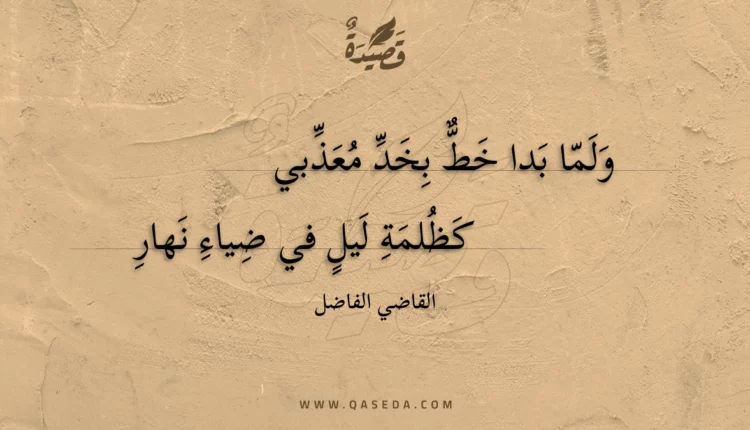 قَصِيدَةٌ
وَلَمّا بَدا خَطٌّ بِخَدِّ مُعَذِّبي
كَظُلمَةِ لَيلٍ في ضِياءِ نَهارِ
القاضي الفاضل
WWW.QASEDA.COM